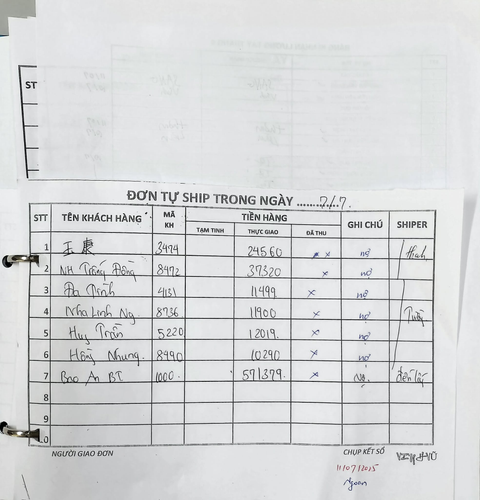 STT
ĐƠN TỰ SHIP TRONG NGÀY ......7/7.
STT TÊN KHÁCH HÀNG MÃ KH TIỀN HÀNG GHI CHÚ SHIPER
TẠM TINH THỰC GIAO ĐÃ THU
1 玉康 3474 24560 x x nợ
2 NH Trống Đồng 8472 37320 x nợ
3 4131 11499 x nợ
4 Nha Linh Ng. 8736 11900 x nợ
5 Huy Trần 5220 12019. x nợ
6 Hồng Nhung. 8990 10290 x nợ
7 Bao An BT 1000. 571379. x nợ. đến lấy
8
9
10
NGƯỜI GIAO ĐƠN CHỤP KẾT SỐ
11/07/2025
Ngoan